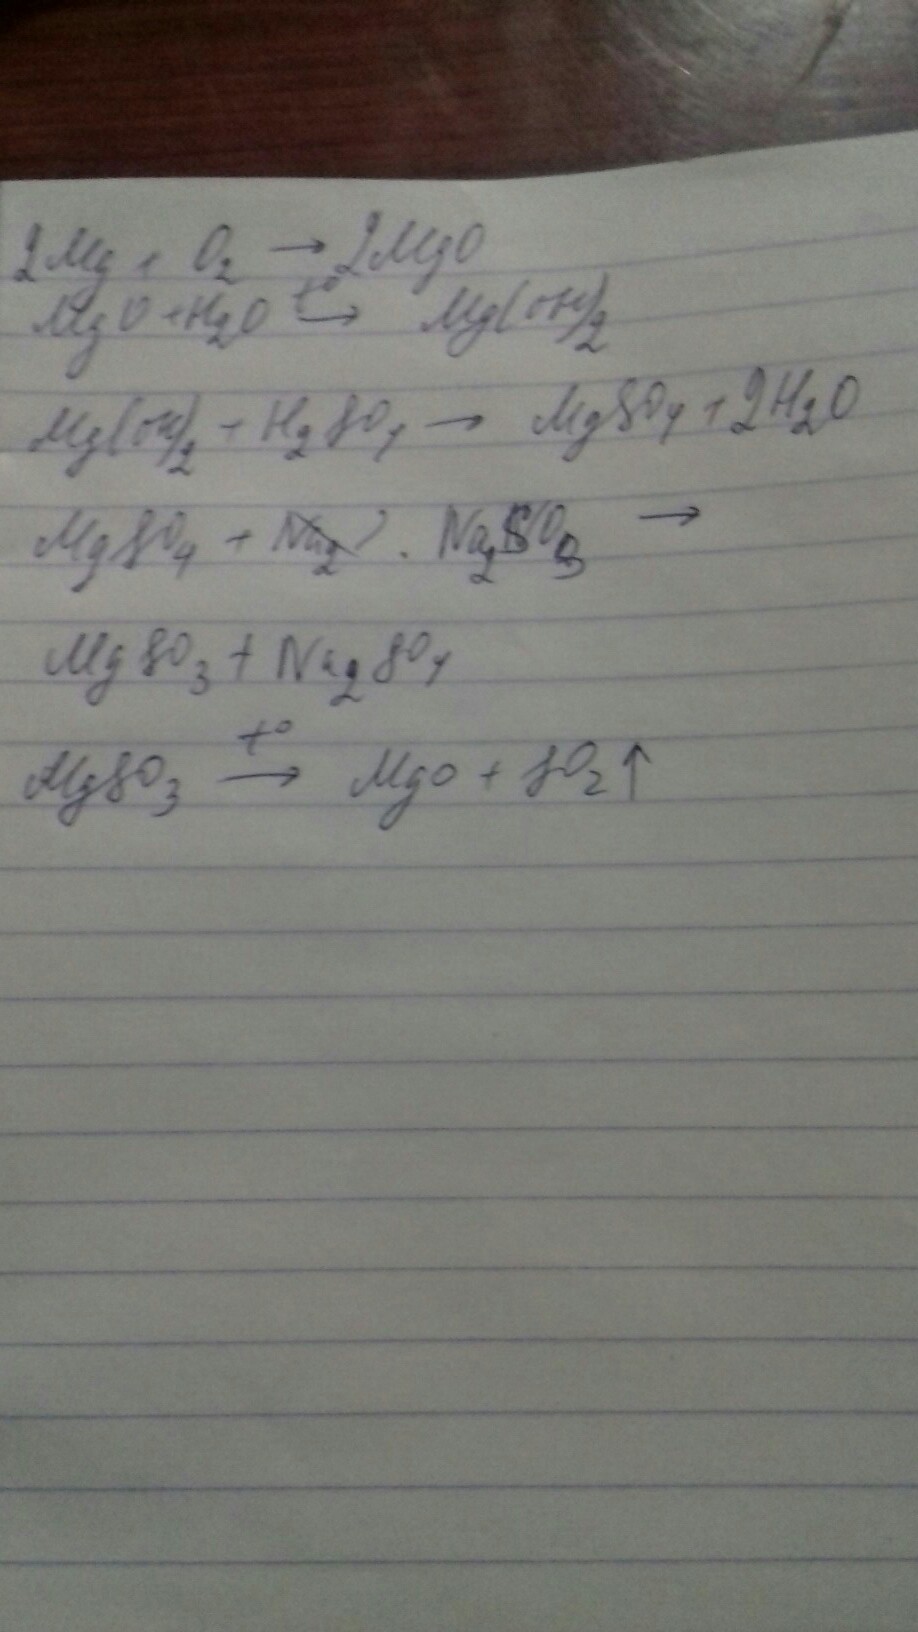 2Mg + O₂ → 2MgO
MgO + H₂O t° → Mg(OH)₂
Mg(OH)₂ + H₂SO₄ → MgSO₄ + 2H₂O
MgSO₄ + Na₂SO₃ →
MgSO₃ + Na₂SO₄
MgSO₃ t° → MgO + SO₂↑